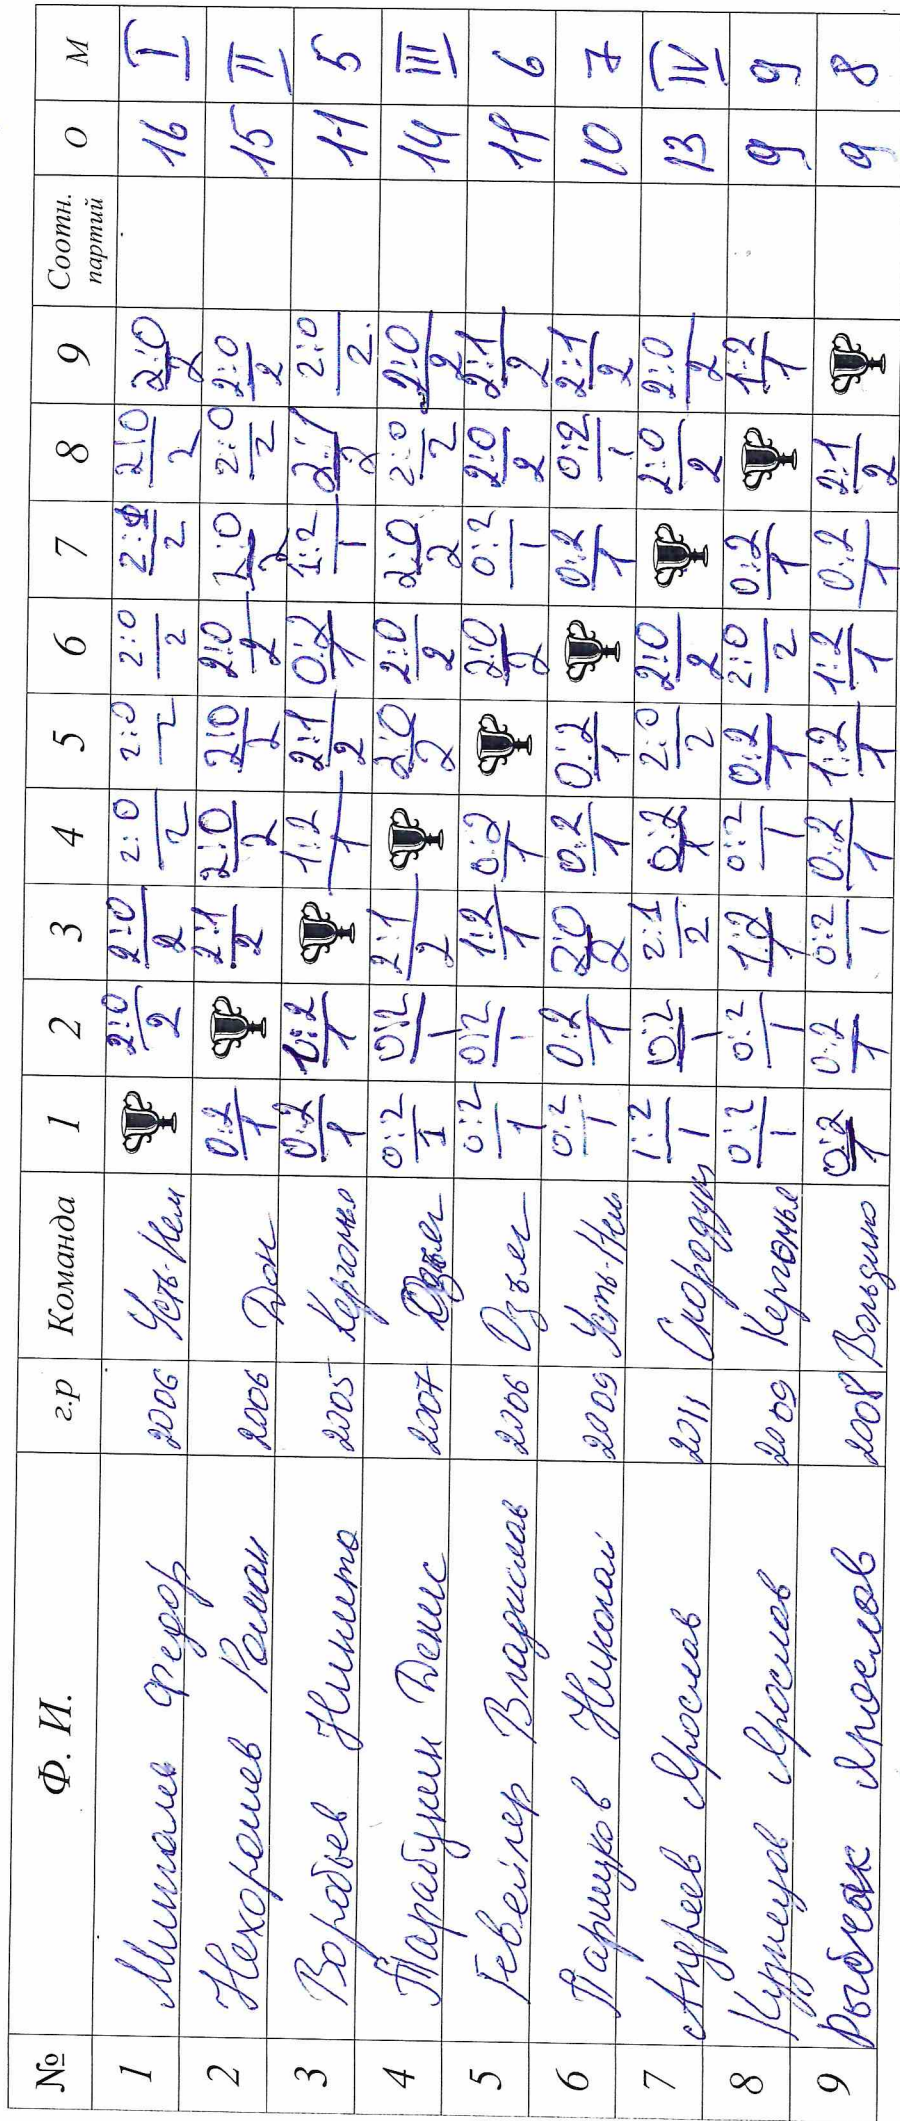 № Ф. И. г.р Команда 1 2 3 4 5 6 7 8 9 Соотн. партий О М
1 Мингалев Федор 2006 Усть-Нем 2:0/2 2:0/2 2:0/2 2:0/2 2:0/2 2:1/2 2:0/2 2:0/2 16 I
2 Нехорошев Роман 2006 Дон 0:2/1 2:1/2 2:0/2 2:0/2 2:0/2 2:0/2 2:0/2 2:0/2 15 II
3 Воробьев Никита 2005 Керчомья 0:2/1 1:2/1 1:2/1 2:1/2 0:2/1 1:2/1 2:1/2 2:0/2 11 5
4 Тарабукин Денис 2007 Озъяг 0:2/1 0:2/1 2:1/2 2:0/2 2:0/2 2:0/2 2:0/2 2:0/2 14 III
5 Гевейлер Владислав 2006 Озъяг 0:2/1 0:2/1 1:2/1 0:2/1 2:0/2 0:2/1 2:0/2 2:1/2 11 6
6 Паршуков Николай 2009 Усть-Нем 0:2/1 0:2/1 2:0/2 0:2/1 0:2/1 0:2/1 0:2/1 2:1/2 10 7
7 Андреев Ярослав 2011 Скородум 1:2/1 0:2/1 2:1/2 0:2/1 2:0/2 2:0/2 2:0/2 2:0/2 13 IV
8 Кузнецов Ярослав 2009 Керчомья 0:2/1 0:2/1 1:2/1 0:2/1 0:2/1 2:0/2 0:2/1 1:2/1 9 9
9 Рыбчак Ярослав 2008 Вольдино 0:2/1 0:2/1 0:2/1 0:2/1 1:2/1 1:2/1 0:2/1 2:1/2 9 8